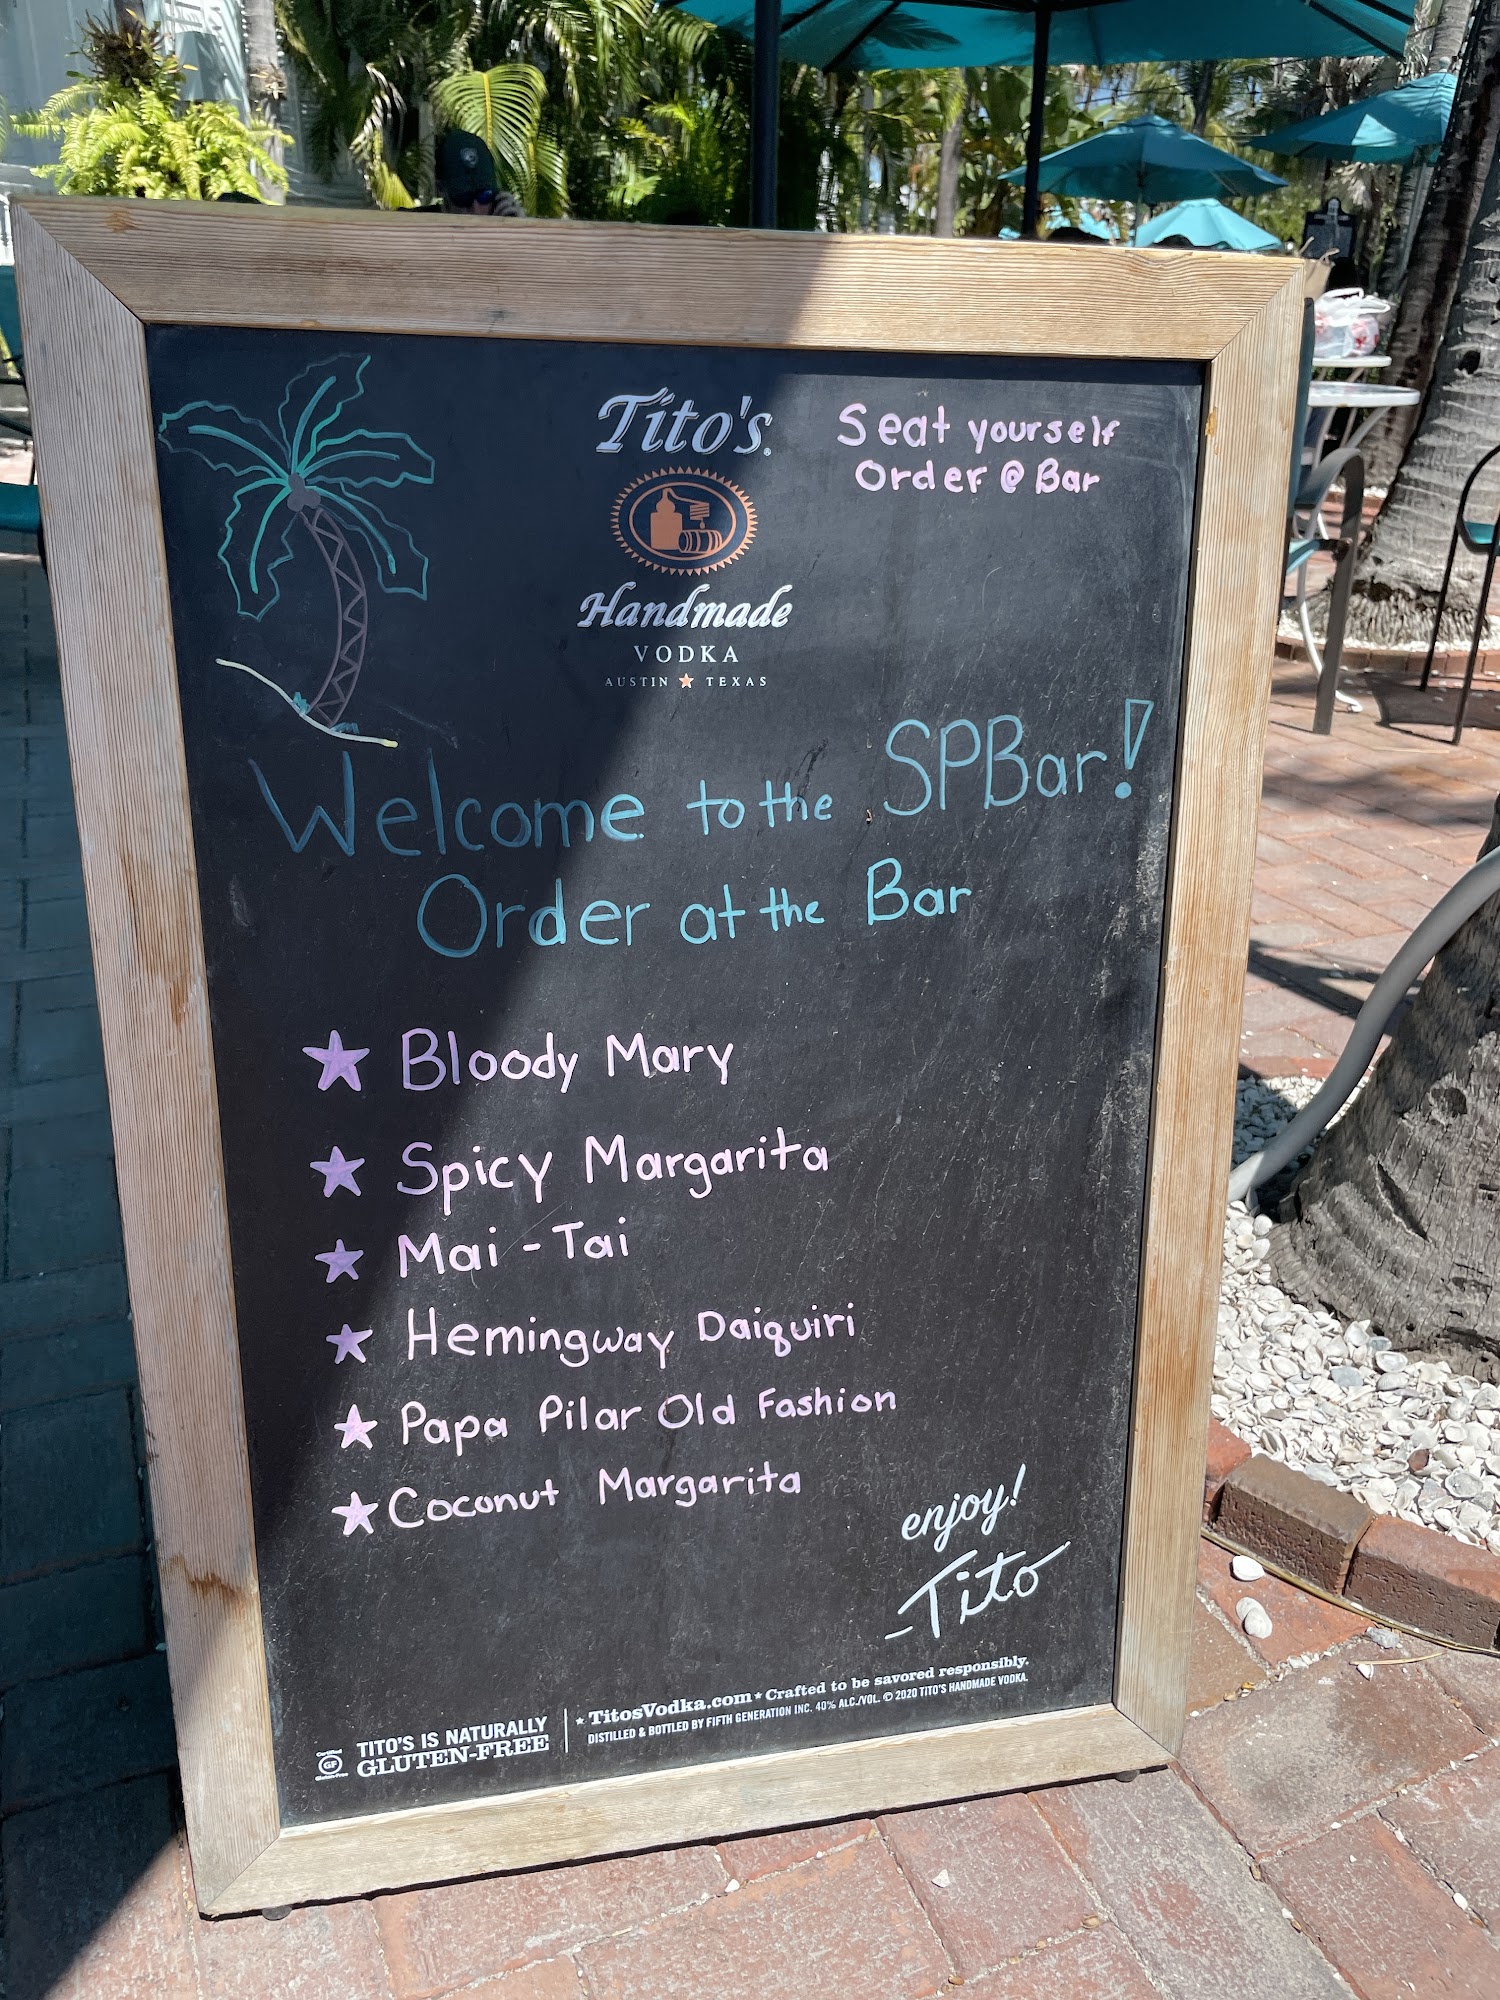 Tito's
Handmade
VODKA
AUSTIN ★ TEXAS
Seat yourself
Order @ Bar
Welcome to the SPBar!
Order at the Bar
★ Bloody Mary
★ Spicy Margarita
★ Mai-Tai
★ Hemingway Daiquiri
★ Papa Pilar Old Fashion
★ Coconut Margarita
enjoy!
-Tito
Certified
GF
Gluten-Free
TITO'S IS NATURALLY
GLUTEN-FREE
★ TitosVodka.com ★ Crafted to be savored responsibly.
DISTILLED & BOTTLED BY FIFTH GENERATION INC. 40% ALC./VOL. © 2020 TITO'S HANDMADE VODKA.